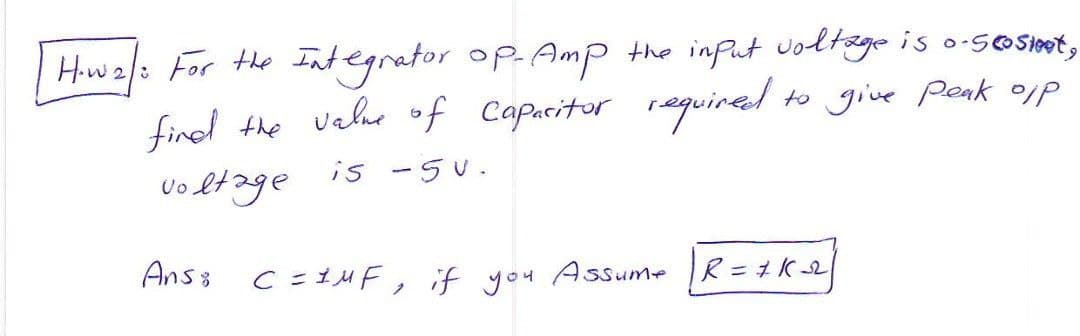 H.w2: For the Integrator op-Amp the input voltage is 0.5cos100t,
find the value of Capacitor required to give peak o/p
voltage is -5v.
Ans: C = 1µF, if you Assume R = 1KΩ